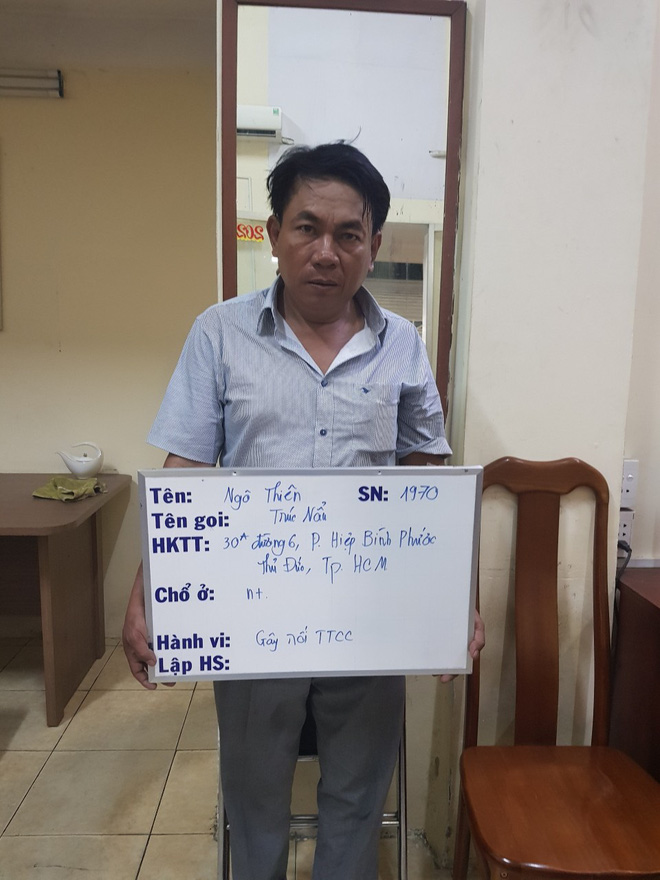 202
Tên: Ngô Thiên SN: 1970
Tên gọi: Trúc Nẩu
HKTT: 30A đường 6, P. Hiệp Bình Phước
Thủ Đức, Tp. HCM
Chổ ở: nt.
Hành vi: Gây rối TTCC
Lập HS: